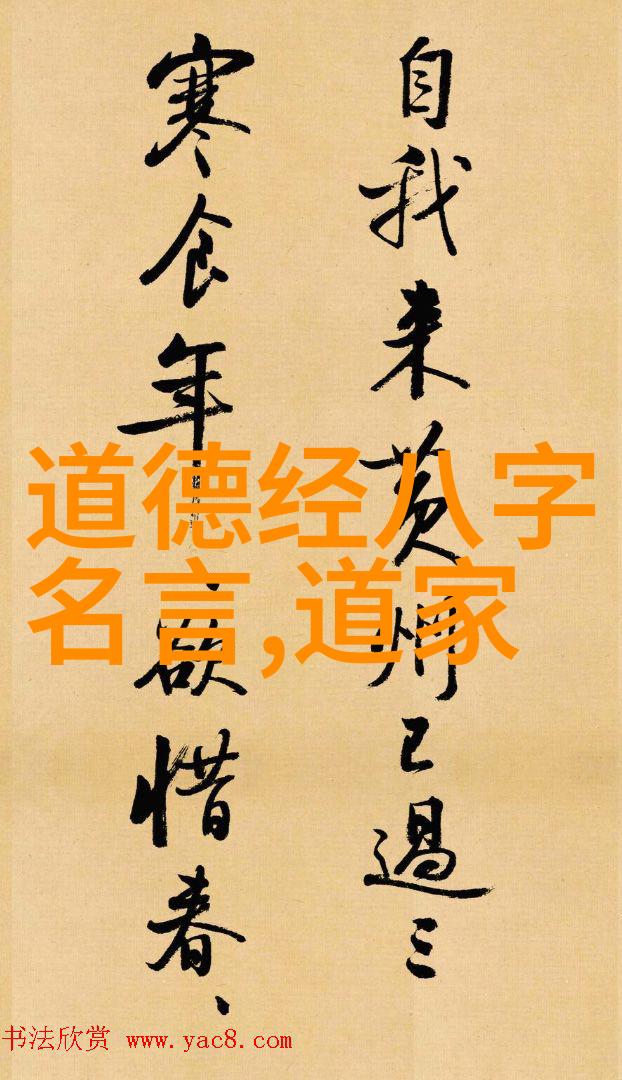 自我来黄州已過三
寒食年〻欲惜春、
道德经八字
名言,道家
书法欣赏 www.yac8.com